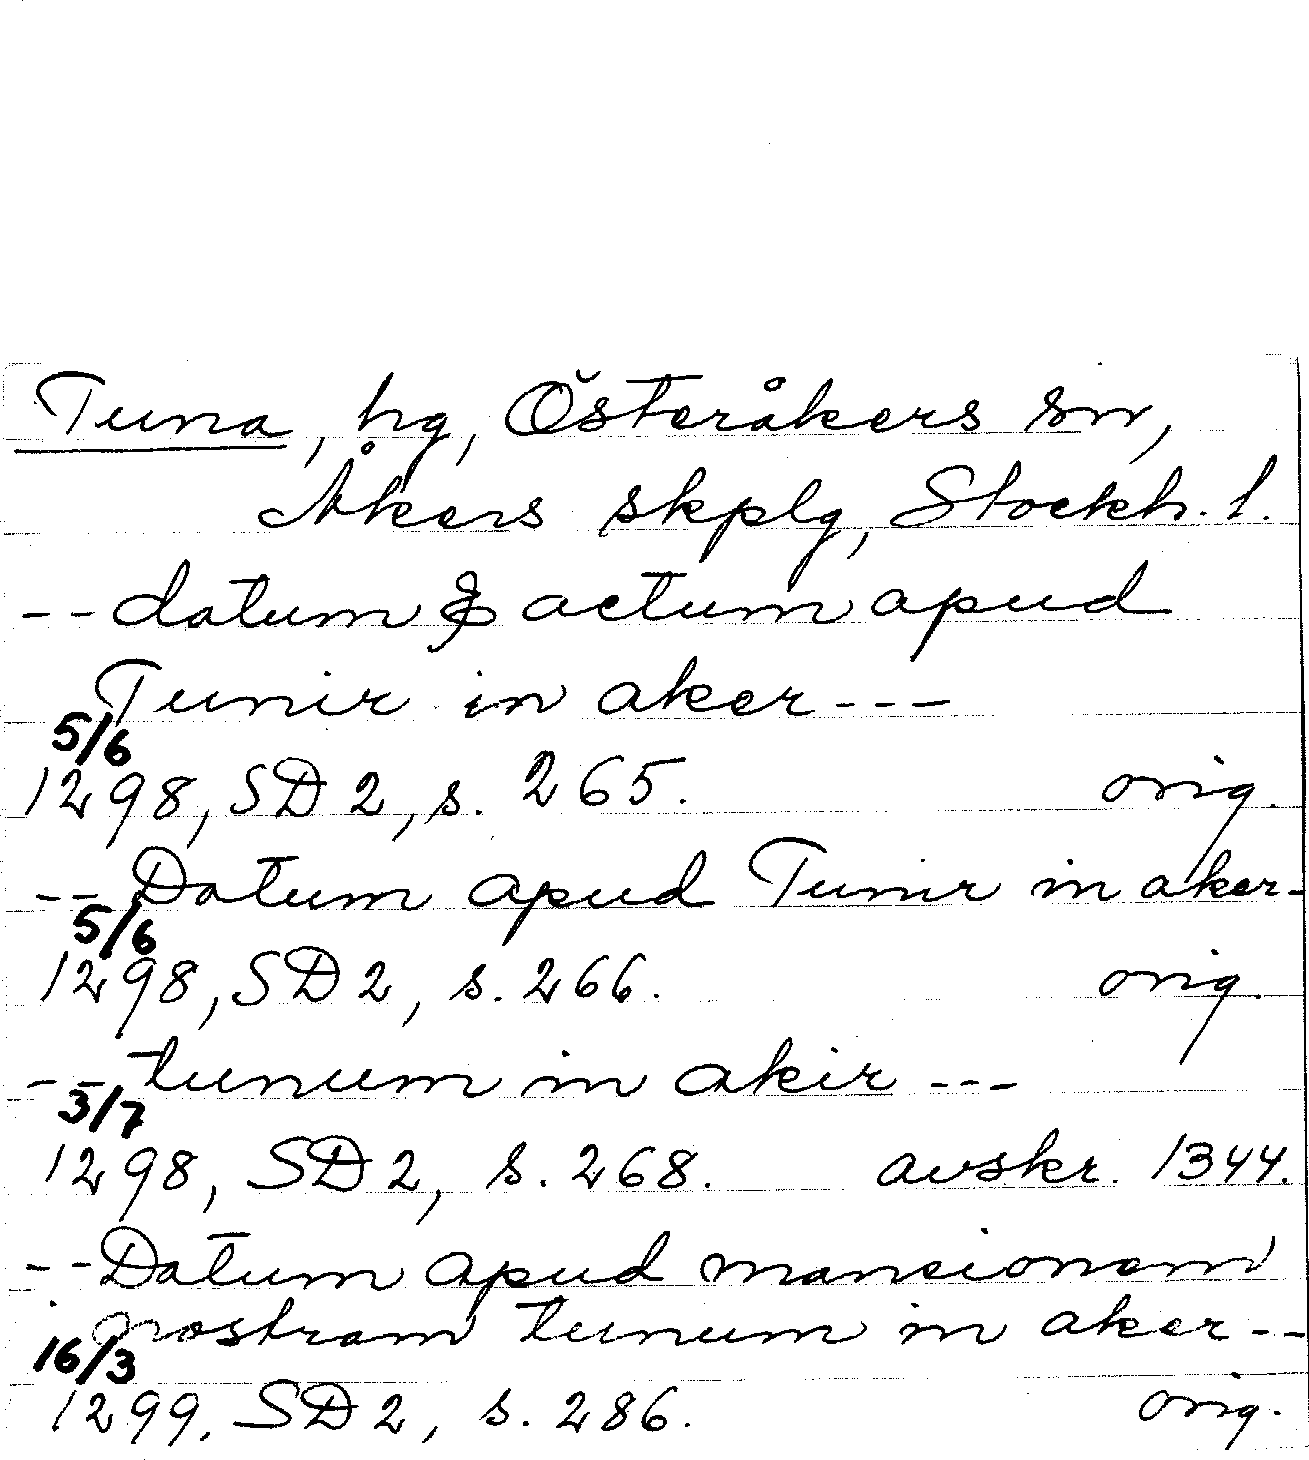 Tuna, hg, Österåkers sn,
Åkers skplg, Stockh. l.
-- datum & actum apud
Tunir in aker ---
5/6
1298, SD 2, s. 265. orig.
-- Datum apud Tunir in aker-
5/6
1298, SD 2, s. 266. orig.
-- tunum in akir ---
3/7
1298, SD 2, s. 268. avskr. 1344.
-- Datum apud mansionem
nostram tunum in aker --
16/3
1299, SD 2, s. 286. orig.